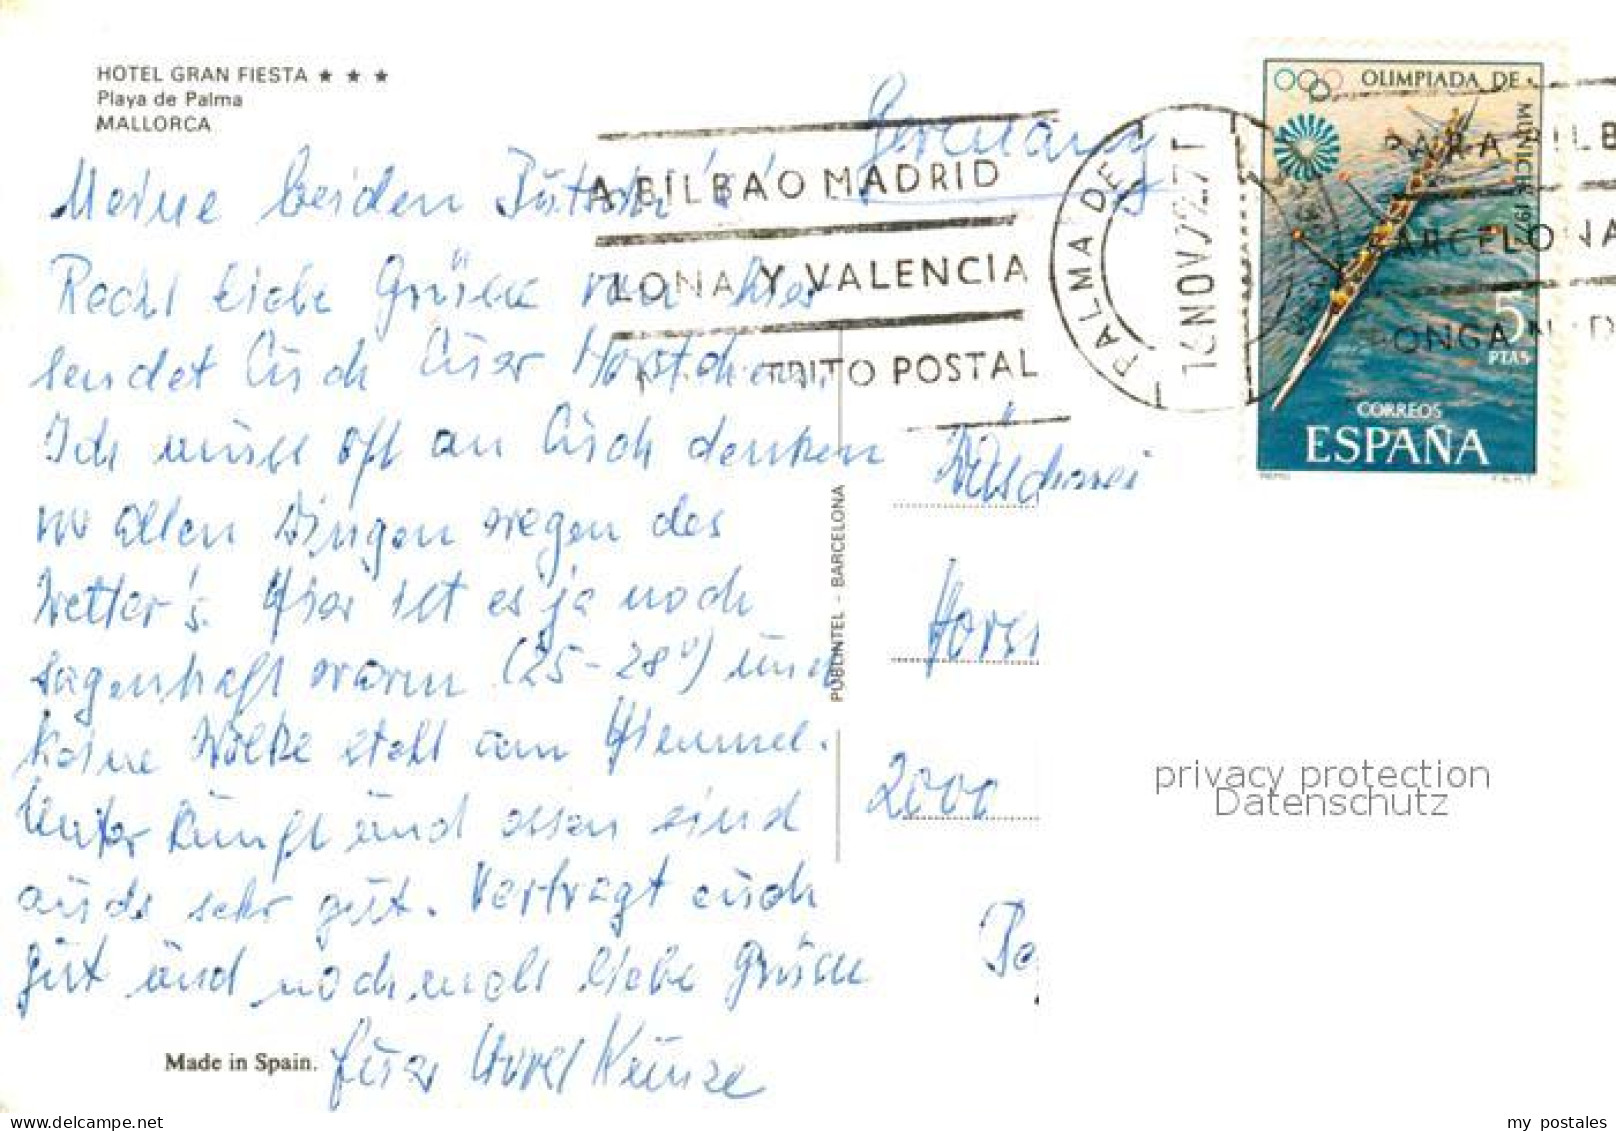 HOTEL GRAN FIESTA ★ ★ ★
Playa de Palma
MALLORCA
Germany
Meine beiden
Recht liebe Grüsse von hier
sendet Euch Euer Horstchen.
Ich muss oft an Euch denken
vor allen Dingen wegen des
Wetter's. Hier ist es ja noch
sagenhaft warm (25-28°) und
keine Wolke steht am Himmel.
Unterkunft und essen sind
auch sehr gut. Vertragt euch
gut und nochmals liebe Grüsse
Euer Horst Kunze
Made in Spain.
PUBLINTEL - BARCELONA
A BILBAO MADRID
LONA Y VALENCIA
TRITO POSTAL
PALMA DE
14 NOV 72
OLIMPIADA DE
MUNICH 197
5
PTAS
CORREOS
ESPAÑA
PARA BILB
BARCELONA
PONGA
Horst
2000
privacy protection
Datenschutz
my postales
www.delcampe.net